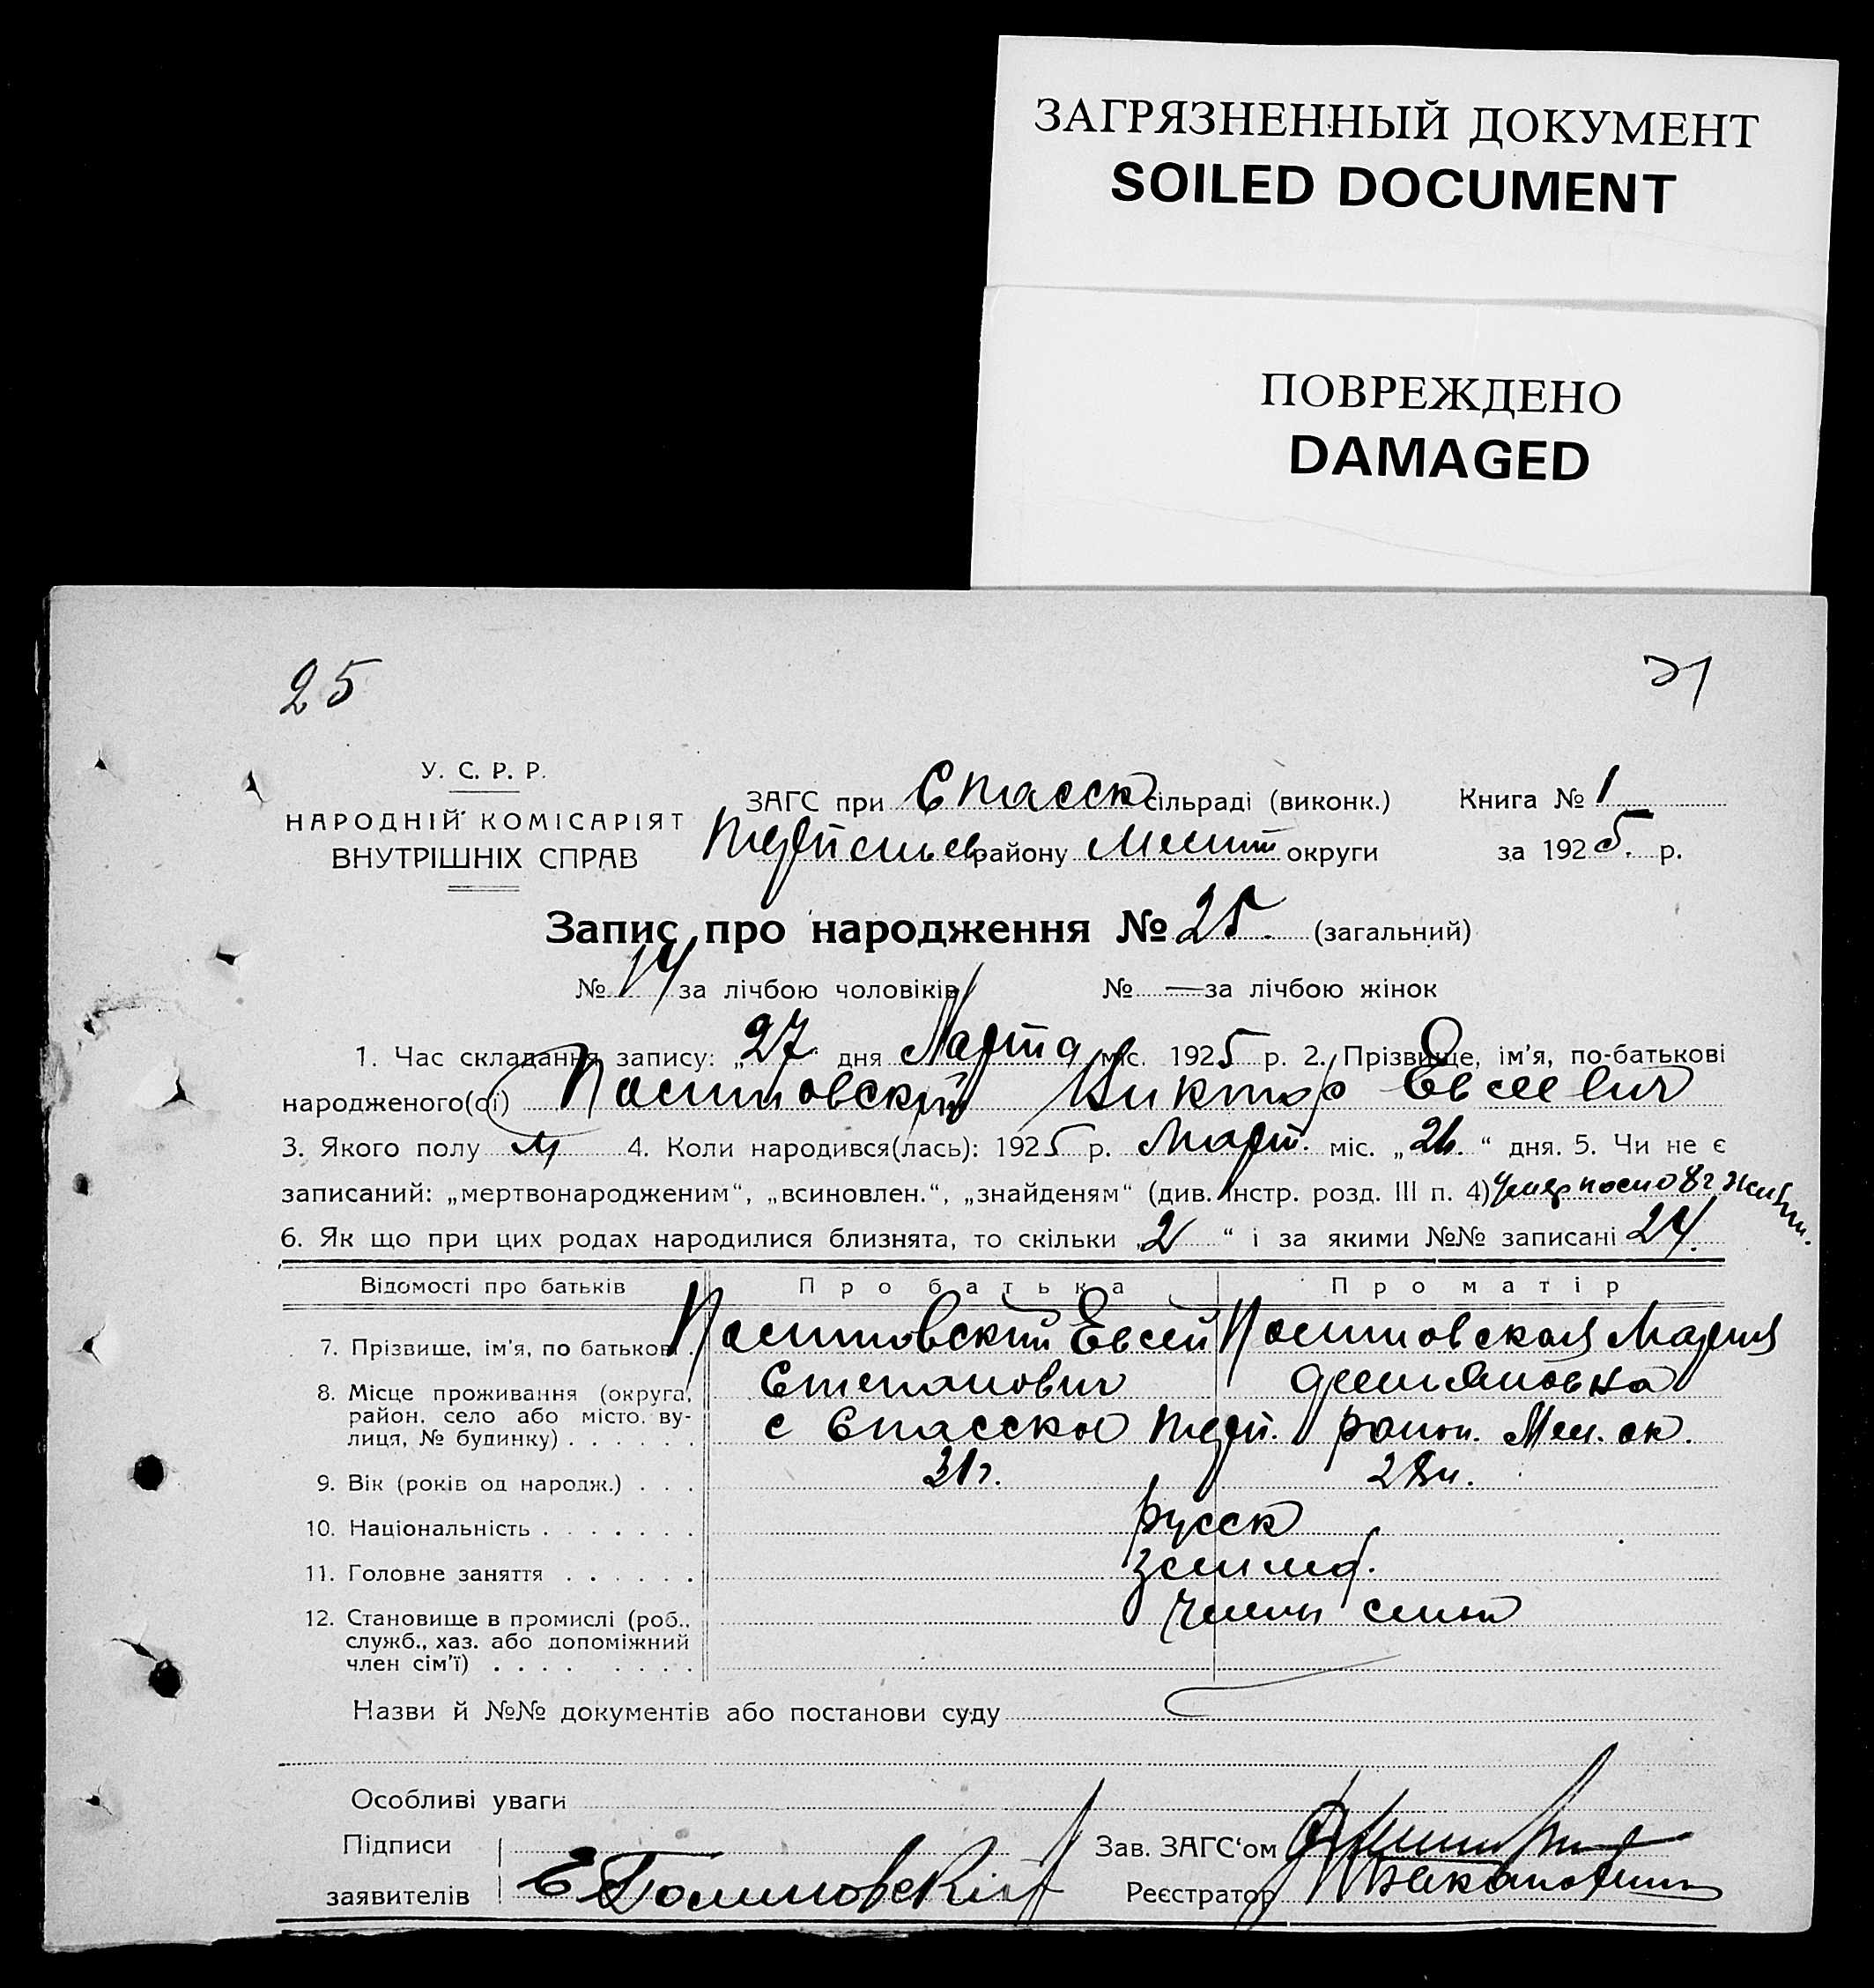 ЗАГРЯЗНЕННЫЙ ДОКУМЕНТ
SOILED DOCUMENT
ПОВРЕЖДЕНО
DAMAGED
25
31
У. С. Р. Р.
НАРОДНІЙ КОМІСАРІЯТ
ВНУТРІШНІХ СПРАВ
ЗАГС при Спасск сільраді (виконк.)
району Мелит округи
Книга № 1
за 1925. р.
Запис про народження № 25. (загальний)
№ 14 за лічбою чоловіків № — за лічбою жінок
1. Час складання запису: „27“ дня Марта міс. 1925 р. 2. Прізвище, ім'я, по-батькові
народженого(ої) Виктор Евсеевич
3. Якого полу м 4. Коли народився(лась): 1925 р. Март. міс. „26.“ дня. 5. Чи не є
записаний: „мертвонародженим“, „всиновлен.“, „знайденям“ (див. Інстр. розд. III п. 4)
6. Як що при цих родах народилися близнята, то скільки „2“ і за якими №№ записані 24.
Відомості про батьків Про батька Про матір
7. Прізвище, ім'я, по батькові Евсей Мария
Степанович
8. Місце проживання (округа,
район, село або місто, ву-
лиця, № будинку) с Спасское район. Мел. ок.
9. Вік (років од народж.) 31 г. 28 л.
10. Національність русск
11. Головне заняття землед. 
12. Становище в промислі (роб.,
служб., хаз. або допоміжний
член сім'ї) члены семьи
Назви й №№ документів або постанови суду
Особливі уваги
Підписи
заявителів Е
Зав. ЗАГС'ом
Реєстратор